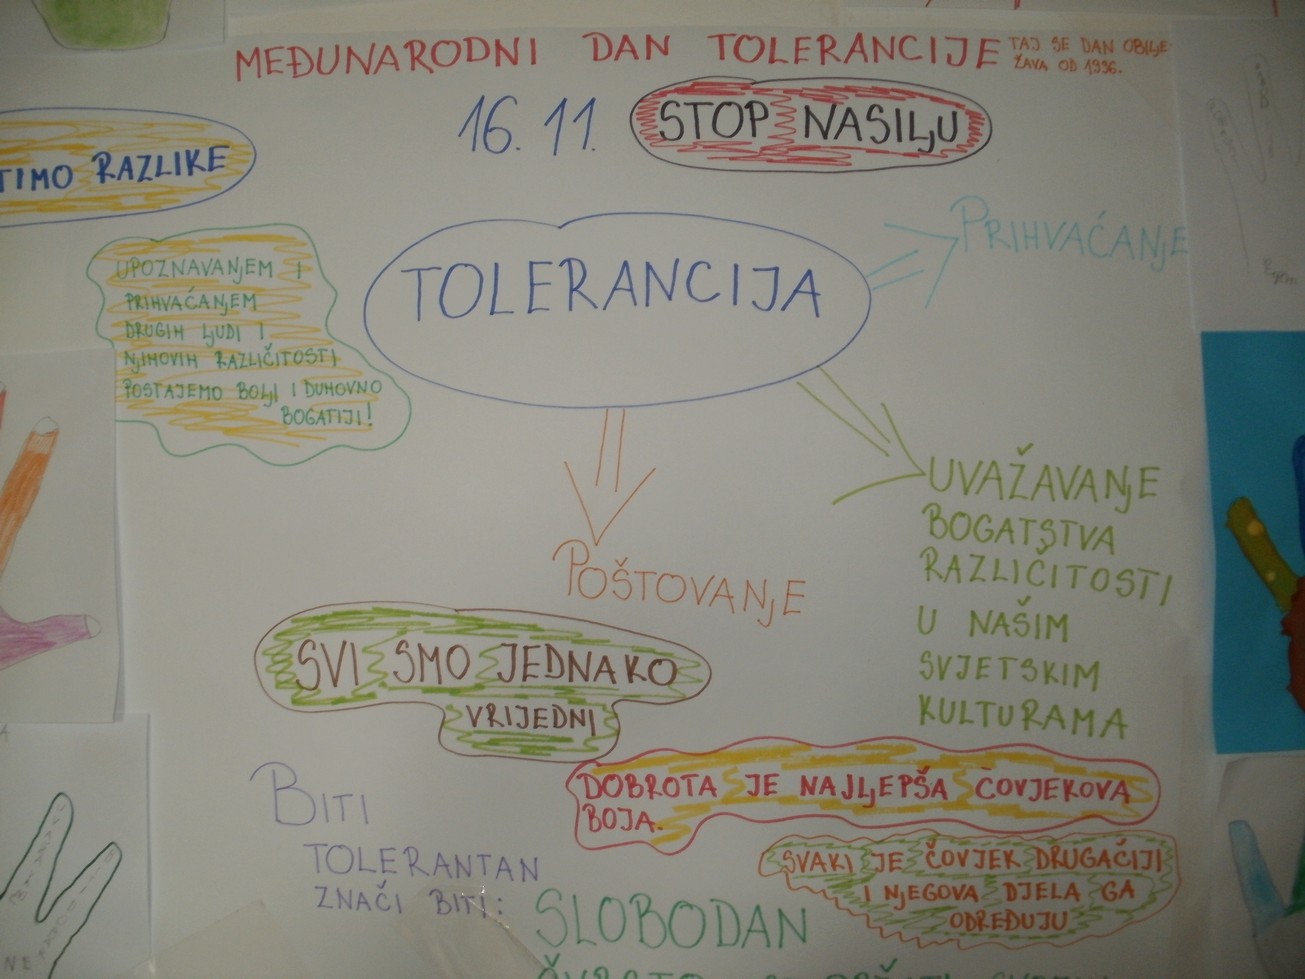 MEĐUNARODNI DAN TOLERANCIJE
TAJ SE DAN OBILJE
ŽAVA OD 1996.
16. 11.
STOP NASILJU
TIMO RAZLIKE
UPOZNAVANJEM I
PRIHVAĆANJEM
DRUGIH LJUDI I
NJIHOVIH RAZLIČITOSTI
POSTAJEMO BOLJI I DUHOVNO
BOGATIJI!
TOLERANCIJA
PRIHVAĆANJE
UVAŽAVANJE
BOGATSTVA
RAZLIČITOSTI
U NAŠIM
SVJETSKIM
KULTURAMA
POŠTOVANJE
SVI SMO JEDNAKO
VRIJEDNI
DOBROTA JE NAJLJEPŠA ČOVJEKOVA
BOJA.
SVAKI JE ČOVJEK DRUGAČIJI
I NJEGOVA DJELA GA
ODREĐUJU
BITI
TOLERANTAN
ZNAČI BITI:
SLOBODAN